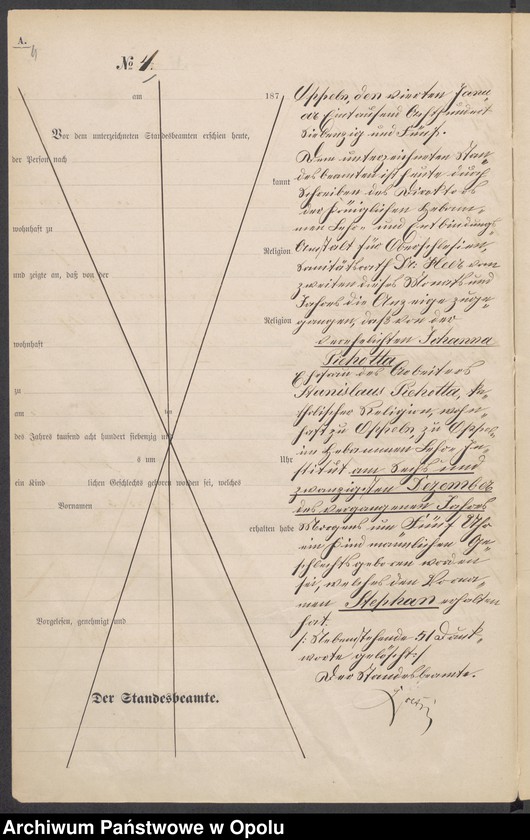 A.
4
No 4.
am 187
Vor dem unterzeichneten Standesbeamten erschien heute,
der Person nach
kannt
wohnhaft zu
Religion
und zeigte an, daß von der
Religion
wohnhaft
zu
am
des Jahres tausend acht hundert siebenzig und
s um Uhr
ein Kind lichen Geschlechts geboren worden sei, welches
Vornamen
erhalten habe
Vorgelesen, genehmigt und
Der Standesbeamte.
Oppeln, den vierten Janu-
ar Eintausend Achthundert
Siebenzig und Fünf.
Dem unterzeichneten Stan-
desbeamten ist heute durch
Schreiben des Direktors
der Königlichen Hebam-
men Lehr- und Entbindungs-
Anstalt für Oberschlesien,
Sanitätsrath Dr. vom
zweiten dieses Monats und
Jahres die Anzeige zuge-
gangen, daß von der
verehelichten Johanna
Pichotta
Ehefrau des Arbeiters
Stanislaus Pichotta, ka-
tholischer Religion, wohn-
haft zu Oppeln, zu Oppeln
im Hebammen Lehr-In-
stitut am Sechs und
zwanzigsten Dezember
des vergangenen Jahres
Morgens um Fünf Uhr
ein Kind männlichen Ge-
schlechts geboren worden
sei, welches den Vorna-
men Stephan erhalten
hat.
/: Nebenstehende 51 Druck-
worte gelöscht :/
Der Standesbeamte.
Archiwum Państwowe w Opolu